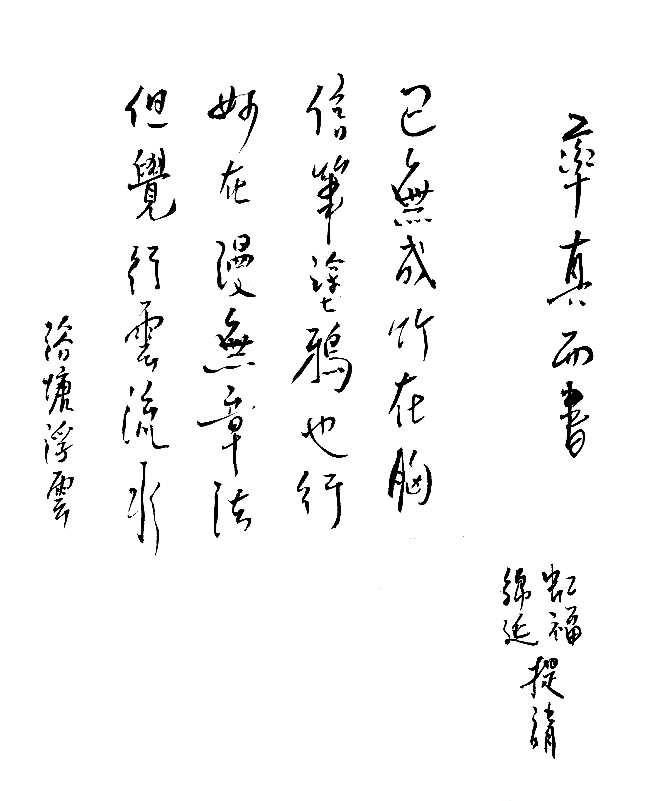 率真而書
虹福
綿延
提請
已無成竹在胸
信筆塗鴉也行
妙在漫無章法
但覺行雲流水
塘浮雲